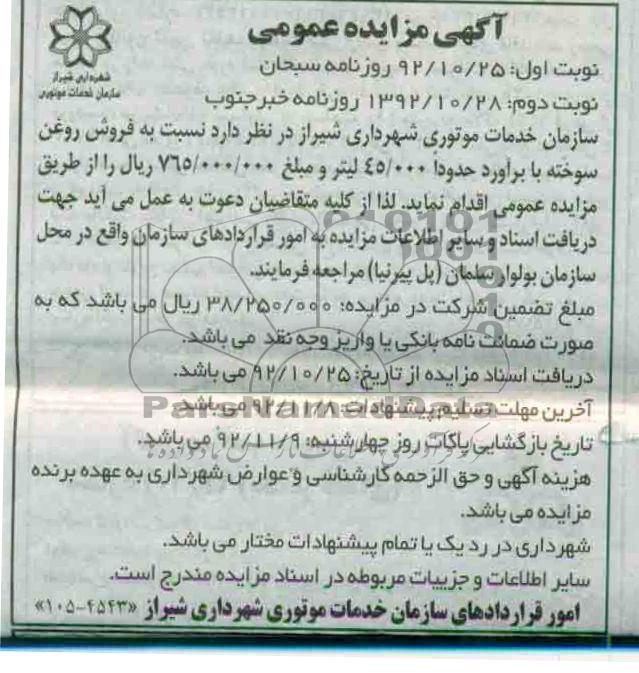 آگهی مزایده عمومی
شهرداری شیراز
سازمان خدمات موتوری
نوبت اول: ۹۲/۱۰/۲۵ روزنامه سبحان
نوبت دوم: ۱۳۹۲/۱۰/۲۸ روزنامه خبرجنوب
سازمان خدمات موتوری شهرداری شیراز در نظر دارد نسبت به فروش روغن
سوخته با برآورد حدودا ٤٥/۰۰۰ لیتر و مبلغ ۷٦٥/۰۰۰/۰۰۰ ریال را از طریق
مزایده عمومی اقدام نماید. لذا از کلیه متقاضیان دعوت به عمل می آید جهت
دریافت اسناد و سایر اطلاعات مزایده به امور قراردادهای سازمان واقع در محل
سازمان بولوار سلمان (پل پیرنیا) مراجعه فرمایند.
مبلغ تضمین شرکت در مزایده: ۳۸/۲۵۰/۰۰۰ ریال می باشد که به
صورت ضمانت نامه بانکی یا واریز وجه نقد می باشد.
دریافت اسناد مزایده از تاریخ: ۹۲/۱۰/۲۵ می باشد.
آخرین مهلت تسلیم پیشنهادات: ۹۲/۱۱/۸ می باشد
ParsNamadData
تاریخ بازگشایی پاکات روز چهارشنبه: ۹۲/۱۱/۹ می باشد.
هزینه آگهی و حق الزحمه کارشناسی و عوارض شهرداری به عهده برنده
مزایده می باشد.
شهرداری در رد یک یا تمام پیشنهادات مختار می باشد.
سایر اطلاعات و جزییات مربوطه در اسناد مزایده مندرج است.
امور قراردادهای سازمان خدمات موتوری شهرداری شیراز «۴۵۴۳-۱۰۵»